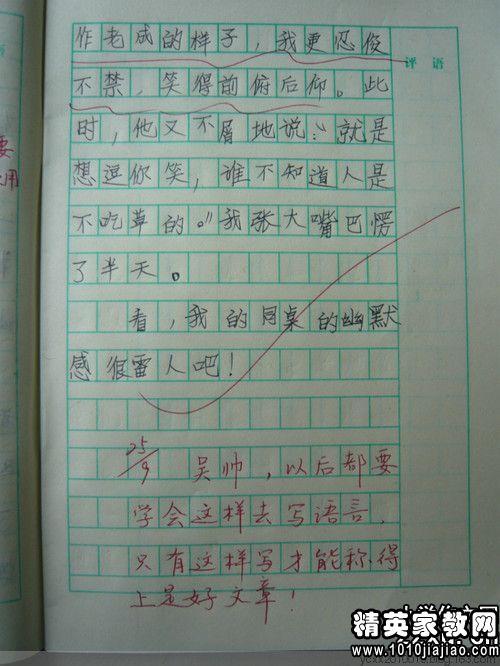 作老成的样子，我更忍俊
不禁，笑得前俯后仰。此
时，他又不屑地说：“就是
想逗你笑，谁不知道人是
不吃草的。”我张大嘴巴愣
了半天。
看，我的同桌的幽默
感很雷人吧！
25/9 吴帅，以后都要
学会这样去写语言，
只有这样写才能称得
上是好文章！
评语
要
用
精英家教网
www.1010jiajiao.com